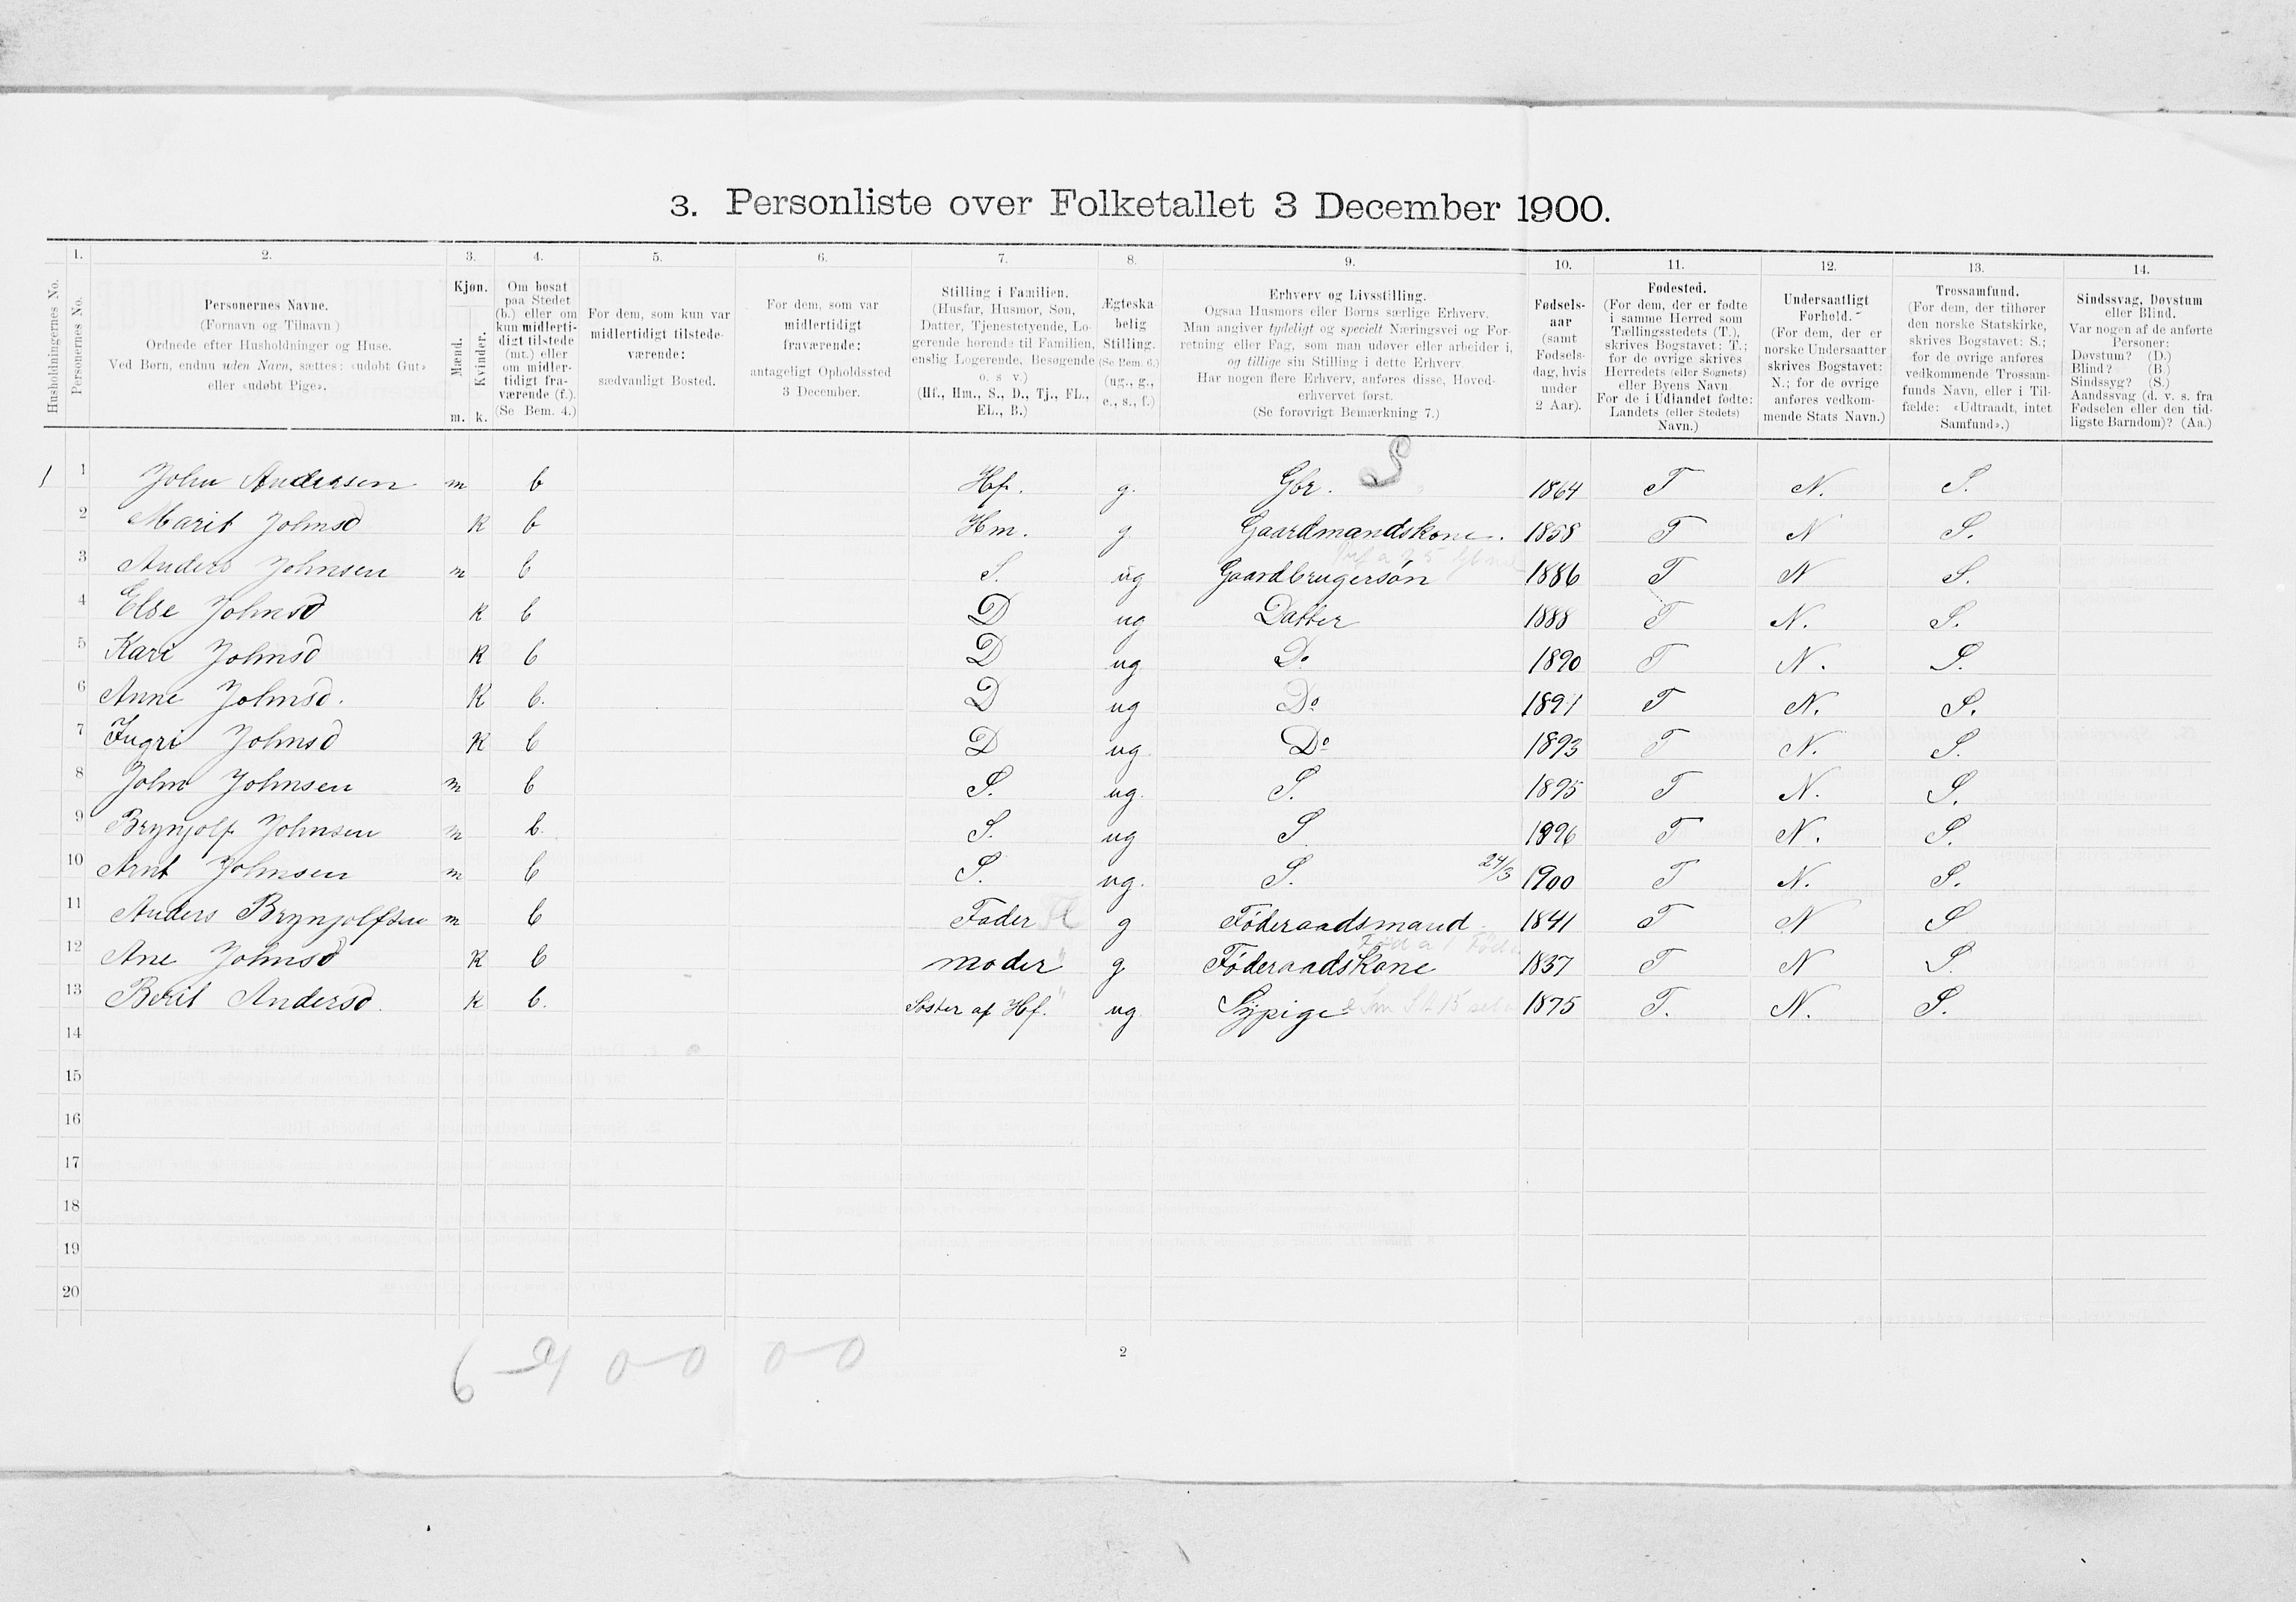 3. Personliste over Folketallet 3 December 1900.
1. 2. 3. 4. 5. 6. 7. 8. 9. 10. 11. 12. 13. 14.
Husholdningernes No.
Personernes No.
Personernes Navne.
(Fornavn og Tilnavn)
Ordnede efter Husholdninger og Huse.
Ved Børn, endnu uden Navn, sættes: «udøbt Gut»
eller «udøbt Pige».
Kjøn.
Mænd.
Kvinder.
m. k.
Om bosat
paa Stedet
(b.) eller om
kun midlerti-
digt tilstede
(mt.) eller
om midler-
tidigt fra-
værende (f.).
(Se Bem. 4.)
For dem, som kun var
midlertidigt tilstede-
værende:
sædvanligt Bosted.
For dem, som var
midlertidigt
fraværende:
antageligt Opholdssted
3 December.
Stilling i Familien.
(Husfar, Husmor, Søn,
Datter, Tjenestetyende, Lo-
gerende hørende til Familien,
enslig Logerende, Besøgende
o. s v.)
(Hf., Hm., S., D., Tj., FL.,
EL., B.)
Ægteska-
belig
Stilling.
(Se Bem. 6.)
(ug., g.,
e., s., f.)
Erhverv og Livsstilling.
Ogsaa Husmors eller Børns særlige Erhverv.
Man angiver tydeligt og specielt Næringsvei og For-
retning eller Fag, som man udøver eller arbeider i,
og tillige sin Stilling i dette Erhverv
Har nogen flere Erhverv, anføres disse, Hoved-
erhvervet først.
(Se forøvrigt Bemærkning 7.)
Fødsels-
aar
(samt
Fødsels-
dag, hvis
under
2 Aar).
Fødested.
(For dem, der er fødte
i samme Herred som
Tællingsstedets (T.),
skrives Bogstavet: T.;
for de øvrige skrives
Herredets (eller Sognets)
eller Byens Navn
For de i Udlandet fødte:
Landets (eller Stedets)
Navn.)
Undersaatligt
Forhold.
(For dem, der er
norske Undersaatter
skrives Bogstavet:
N.; for de øvrige
anføres vedkom-
mende Stats Navn.)
Trossamfund.
(For dem, der tilhører
den norske Statskirke,
skrives Bogstavet: S.;
for de øvrige anføres
vedkommende Trossam-
funds Navn, eller i Til-
fælde: «Udtraadt, intet
Samfund».)
Sindssvag, Døvstum
eller Blind.
Var nogen af de anførte
Personer:
Døvstum? (D.)
Blind? (B.)
Sindssyg? (S.)
Aandssvag (d. v. s. fra
Fødselen eller den tid-
ligste Barndom)? (Aa.)
S
1 1 John Andersen m b Hf. g. Gbr. 1864 T N. S.
2 Marit Johnsd K b Hm. g Gaardmandskone. 1858 T N S.
3 Anders Johnsen m b S. ug Gaardbrugersøn 1886 T N S.
4 Else Johnsd K b D ug Datter 1888 T N. S.
5 Kari Johnsd K b D ug Do 1890 T N. S.
6 Anne Johnsd. K b. D ug Do 1891 T N. S.
7 Ingri Johnsd K b D ug Do 1893 T N. S.
8 John Johnsen m b S. ug. S. 1895 T N. S.
9 Brynjolf Johnsen m b. S. ug S 1896 T N. S.
10 Arnt Johnsen m b S. ug. S. 24/3 1900 T N. S.
11 Anders Brynjolfsen m b Fader g Føderaadsmand 1841 T N S
12 Ane Johnsd K b moder g Føderaadskone 1837 T N S.
13 Berit Andersd. K b. Søster af Hf. ug Sypige 1875 T. N. S.
14
15
16
17
18
19
20
6 – 7 0 – 0 0 – 0
2